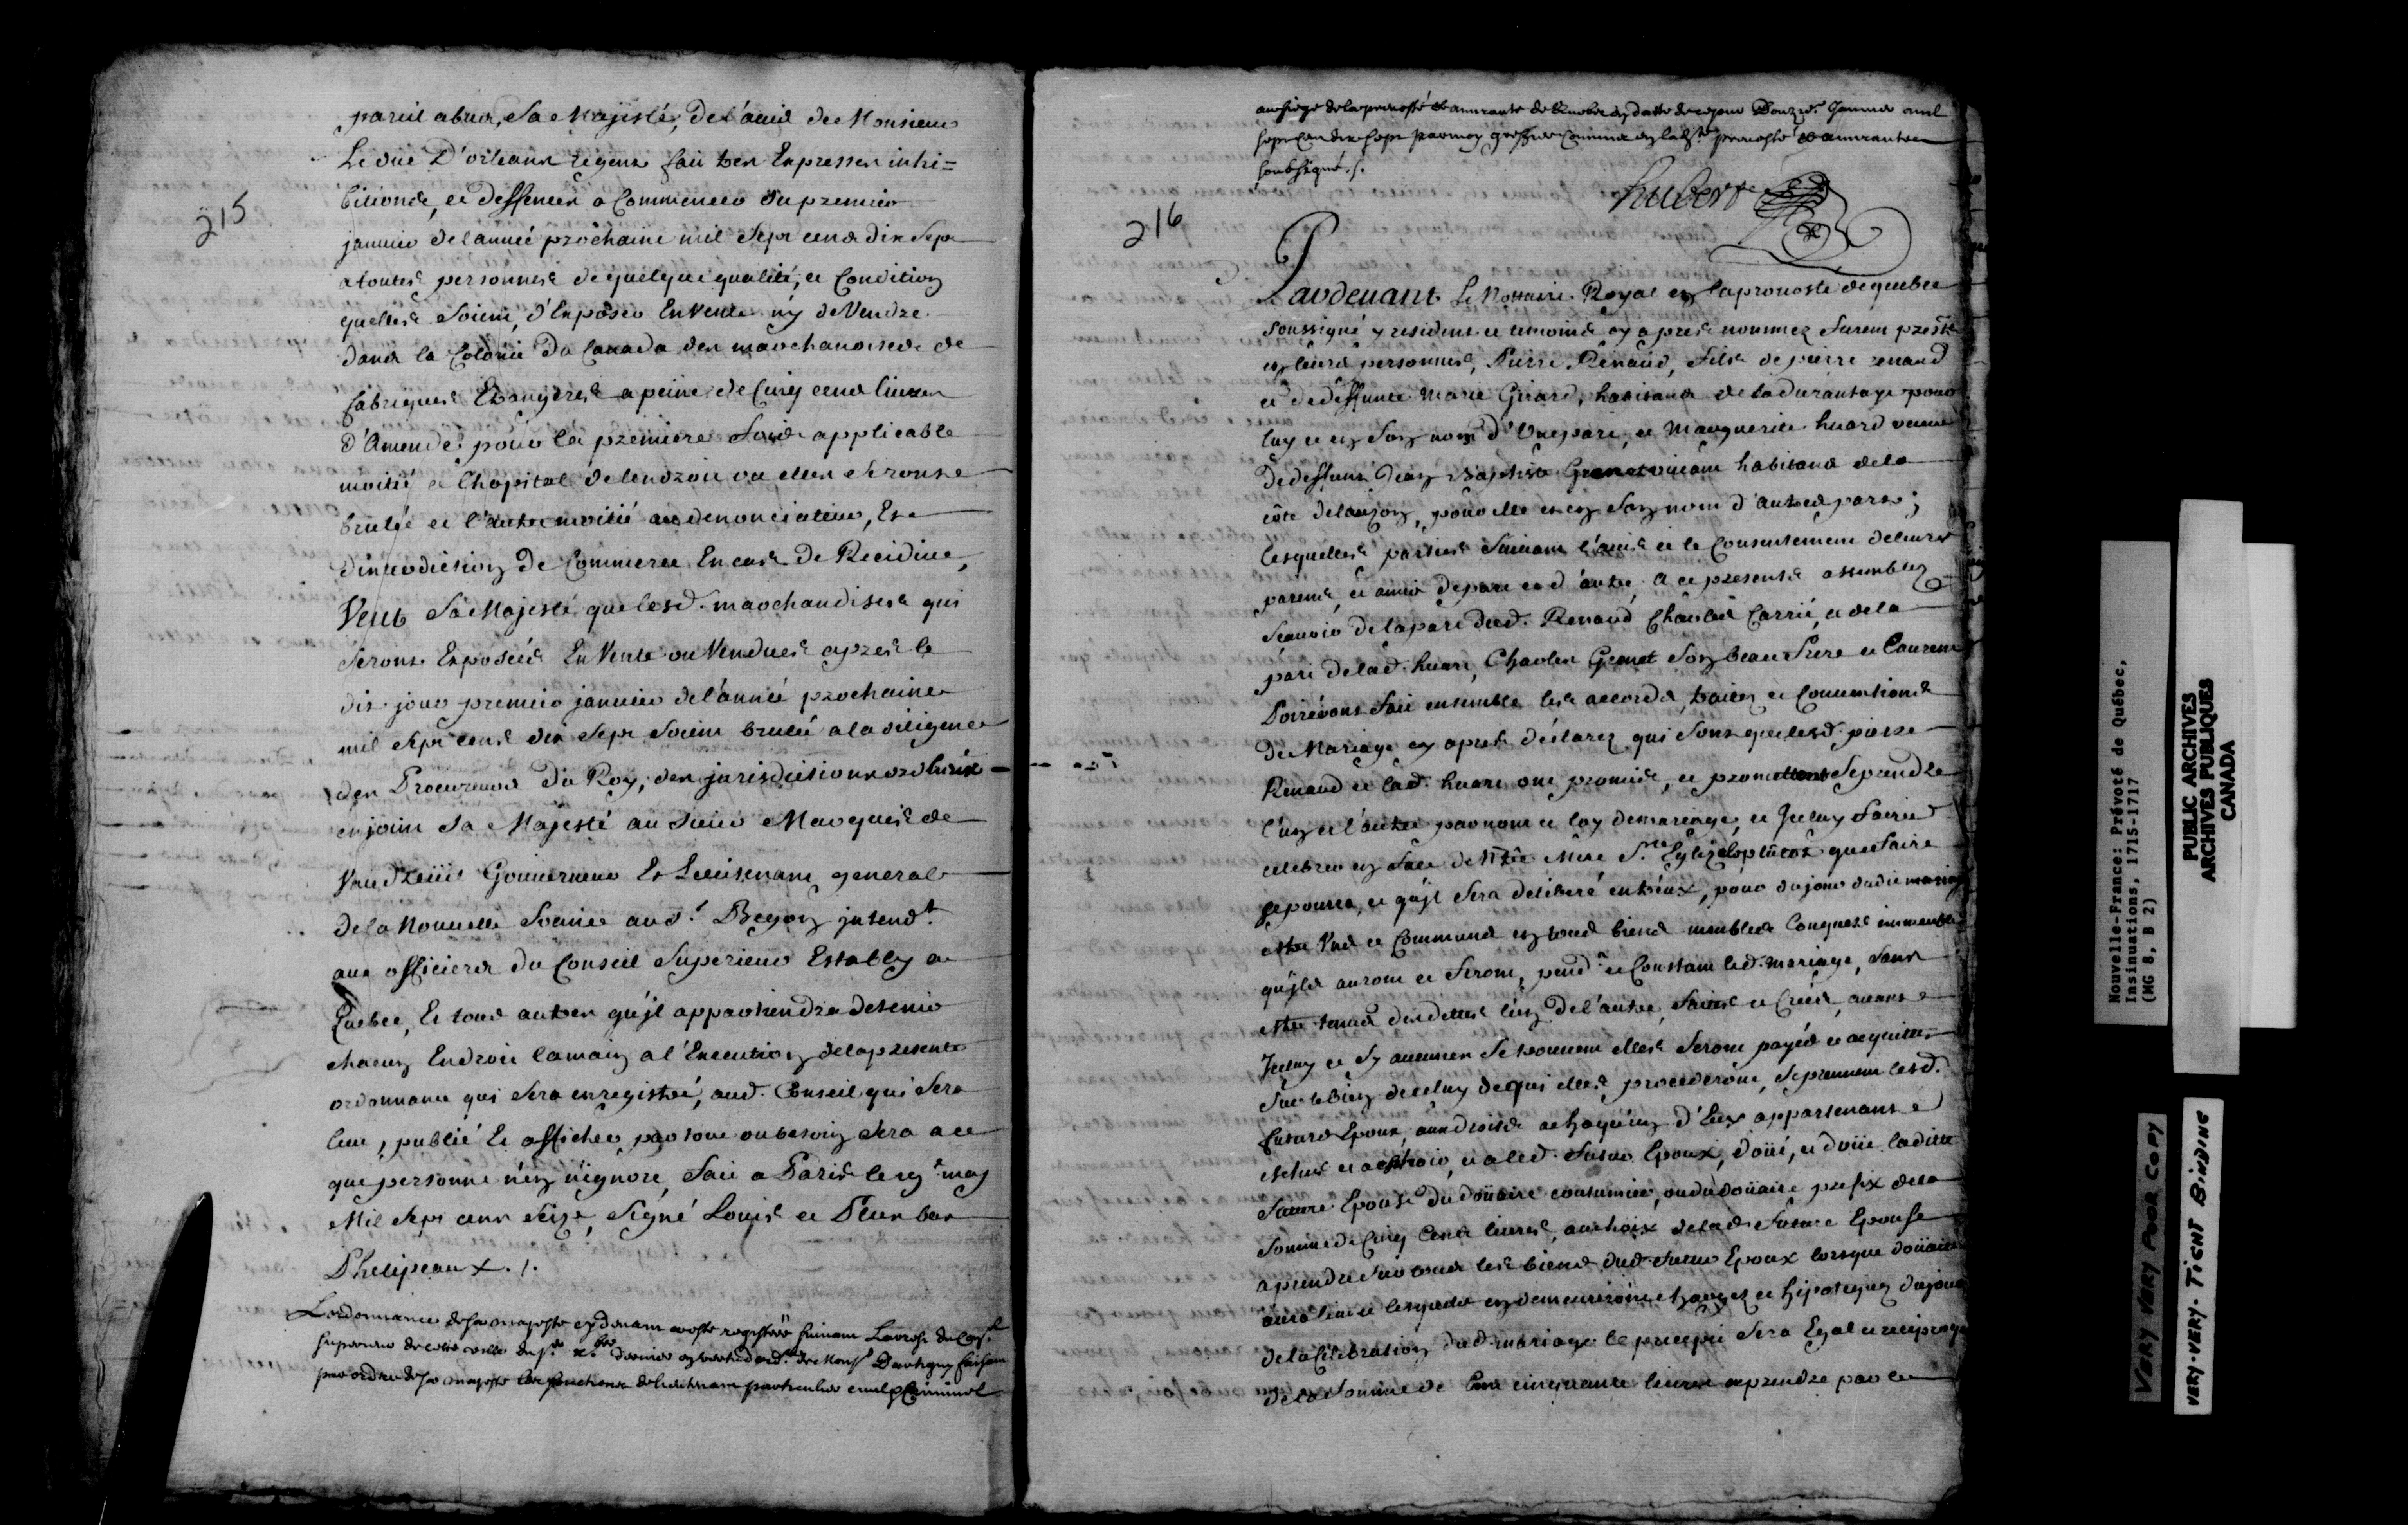 215
pareil abus, Sa Majesté, de l'auis de Monsieur
Le duc D'orleans regent fait tres Expresses inhi=
bitions, et deffences a Commencer du premier
januier de l'année prochaine mil Sept cens dix Sept
a toutes personnes de quelque qualité, et Condition
quelles Soient, d'Exposer En Vente ny de Vendre
dans la Colonie du Canada des marchandises de
fabriques Etrangeres a peine de Cinq cens liures
d'Amende pour la premiere fois applicable
moitié a l'hopital de lendroit ou elles Seront
brulée et l'autre moitié au denonciateur, Et
d'interdiction de Commerce En cas de Recidiue,
Veut Sa Majesté que lesd. marchandises qui
Seront Exposées En Vente ou Vendues apres le
dit jour premier januier de l'année prochaine
mil Sept cens dix Sept Soient brulée a la diligence
des Procureurs du Roy, des jurisdictions ordres
enjoint Sa Majesté au Sieur Marquis de
Vaudreüil Gouuerneur Et Lieutenant general
de la Nouuelle France au Sr. Begon jntendt.
aux officiers du Conseil Superieur Estably a
Quebec, Et tous autres qu'jl appartiendra de tenir
chacun Endroit la main a l'Execution de la presente
ordonnance qui Sera enregistré, aud. Conseil qui Sera
leue, publié Et affichée par tout ou besoin Sera a ce
que personne n'en n'ignore, Fait a Paris le may
Mil Sept cens Seize, Signé Louis et Plus bas
Phelipeaux . /.
L'ordonnance de sa majesté cy deuant a esté registrée suiuant L'arrest du Conl.
superieur de cette ville du xbre dernier de Monsr. Dartigny faisant
par ordre de sa majesté les fonctions de lieutenant particulier ciuil & Criminel
216
au siege de la preuosté & amirauté de Quebec en datte de ce jour Januier mil
sept cens dix sept par moy greffier Commis en lade. preuosté & amirauté
soubsigné. /.
hubert
Pardeuant Le Nottaire Royal en la preuosté de quebec
Soussigné y resident et temoins cy apres nommez furent prests
en leurs personnes, Pierre Renaud, fils de pierre renaud
et de deffunte Marie Girard, habitans de la durantaye pour
luy et en Son nom d'Unepart, et Marguerite huard veuue
de deffunt Jean Baptiste Grenet viuant habitans de la
côte de lauzon, pour elle et en Son nom d'autre part ;
Lesquelles parties Suiuant l'auis et le Consentement de leurs
parens, et amis de part et d'autre a ce presents assemblez
Scauoir de la part dud. Renaud Charles Carrié, et de la
part de lad. huart, Charles Grenet Son beau frere et Laurent
Poiré ont fait ensemble les accords, traitez et Conuentions
de Mariage cy apres déclarez qui Sont que lesd. pierre
Renaud et lad. huart ont promis, et promettent Se prendre
l'un et l'autre par nom et loy de mariage, et Jceluy faire
celebrer en face de Nre. Mere Ste. Eglize le plutost que faire
Se pourra, et qu'jl Sera deliberé entr'eux, pour du jour dudit mariage
estre Uns et Communs en tous biens meubles Conquets immeubles
qu'jls auront et feront, pendt. et Constant led. mariage, Sans
estre tenus des dettes l'un de l'autre, faites et Créés, auant
Jceluy et Sy aucunes Se trouuent elles Seront payés et acquittées
Sur le bien de celuy de qui elles procederont, Se prennent lesd.
futurs Epoux, aux droits a chaqu'un d'Eux appartenant
eschus et a eschoir, et a led. futur Epoux, doüé, et doüe laditte
future Epouse du doüaire coutumier, ou du doüaire prefix de la
Somme de Cinq Cens liures, au choix de lad. future Epouse
a prendre Sur tous les biens dud. futur Epoux lorsque doüaire
aura lieu et lesquels en demeureront chargez et hipotequez du jour
de la Celebration dud. mariage le preciput Sera Egal et reciproque
de la Somme de Cent cinquante liures a prendre par le
Nouvelle-France: Prévoté de Québec,
Insinuations, 1715-1717
(MG 8, B 2)
PUBLIC ARCHIVES
ARCHIVES PUBLIQUES
CANADA
VERY VERY POOR COPY
VERY-VERY TIGHT BINDING